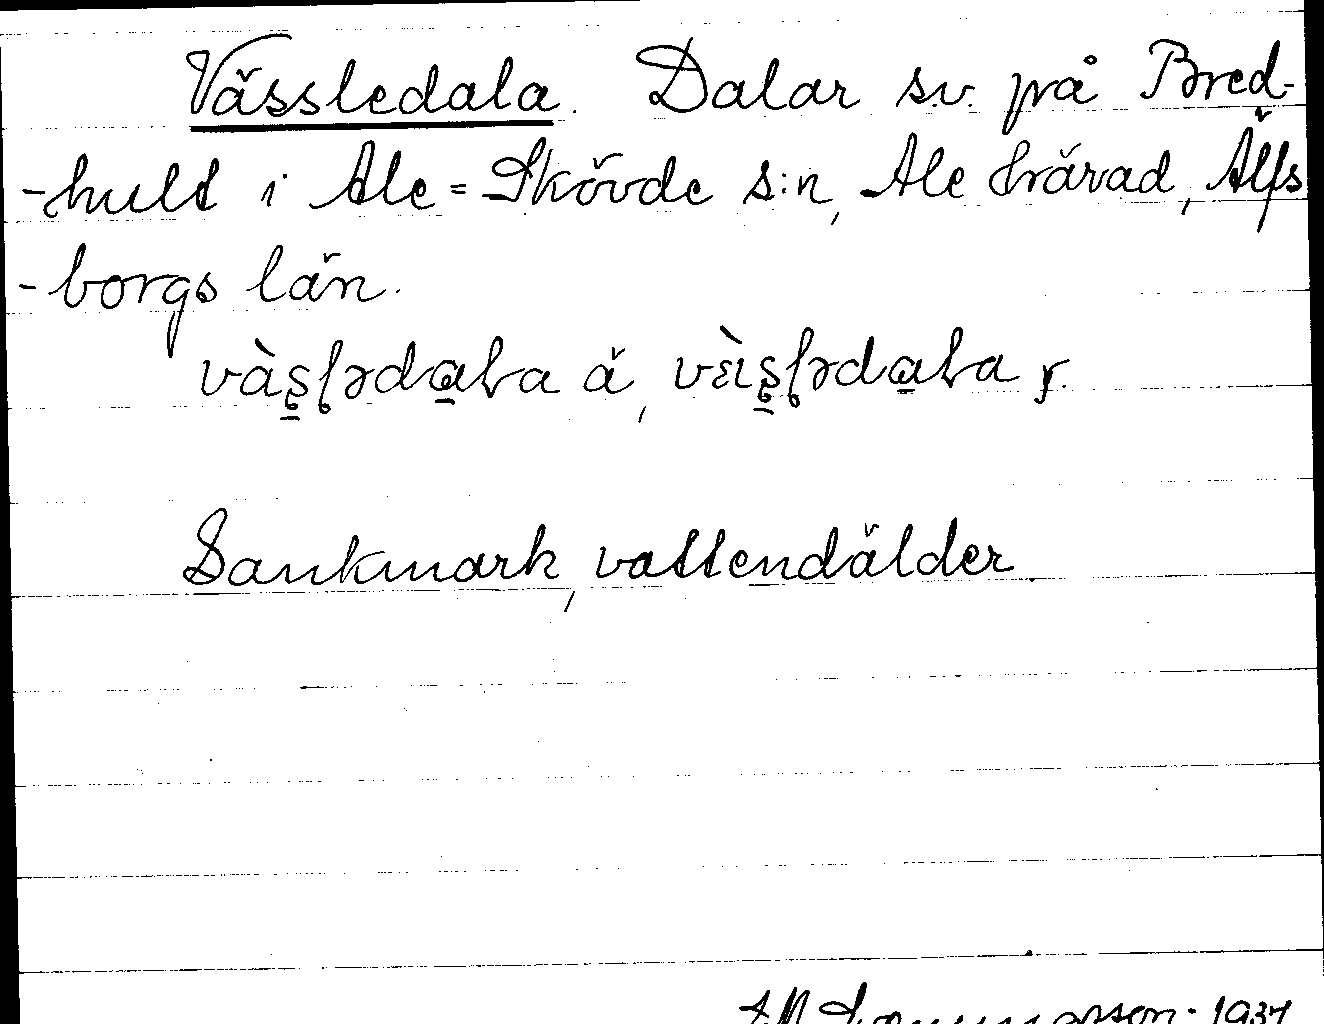 Vässledala. Dalar s.v. på Bred-
-hult i Ale=Skövde s:n, Ale härad, Älfs
-borgs län.
vàs̱ḷədaḻa ä,
Sankmark, vattendälder
1937